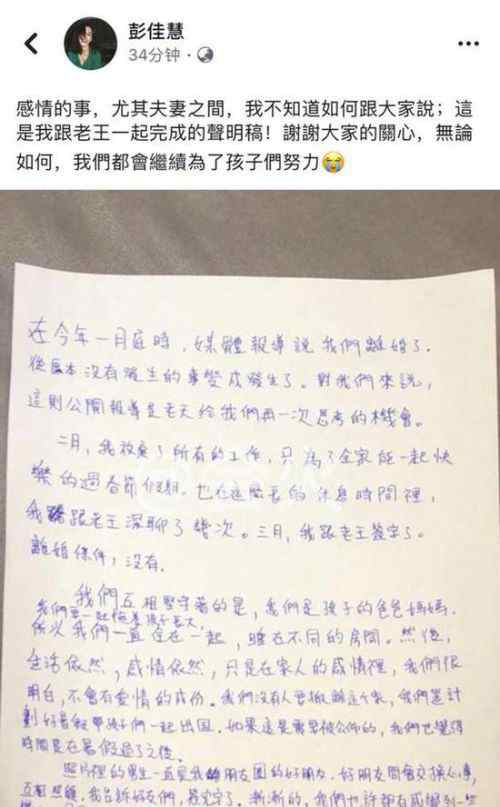 彭佳慧
34分钟
感情的事，尤其夫妻之間，我不知道如何跟大家說；這
是我跟老王一起完成的聲明稿！謝謝大家的關心，無論
如何，我們都會繼續為了孩子們努力😭
在今年一月底時，媒體報導說我們離婚了．
從原本沒有發生的事變成發生了。對我們來說，
這則公開報導是老天給我們再一次思考的機會。
二月，我放棄了所有的工作，只為了全家能一起快
樂的過春節假期．也在這麼長的休息時間裡，
我跟老王深聊了幾次。三月，我跟老王簽字了。
離婚條件；沒有．
我們互相堅守著的是，我們是孩子的爸爸媽媽．
我們要一起陪著孩子長大．
所以我們一直住在一起，睡在不同的房間。然後，
生活依然，感情依然，只是在家人的感情裡，我們很
明白，不會有愛情的成份。我們沒有人要搬離這個家，我們是計
劃好暑假帶孩子們一起出國．如果這是需要被公佈的，我們也覺得
時間是在暑假過了之後。
照片裡的男生一直是我朋友圈的好朋友．好朋友間會交換心事，
互相照顧．我告訴好友們，簽完字了。漸漸的，我們也許都有感觸到一些